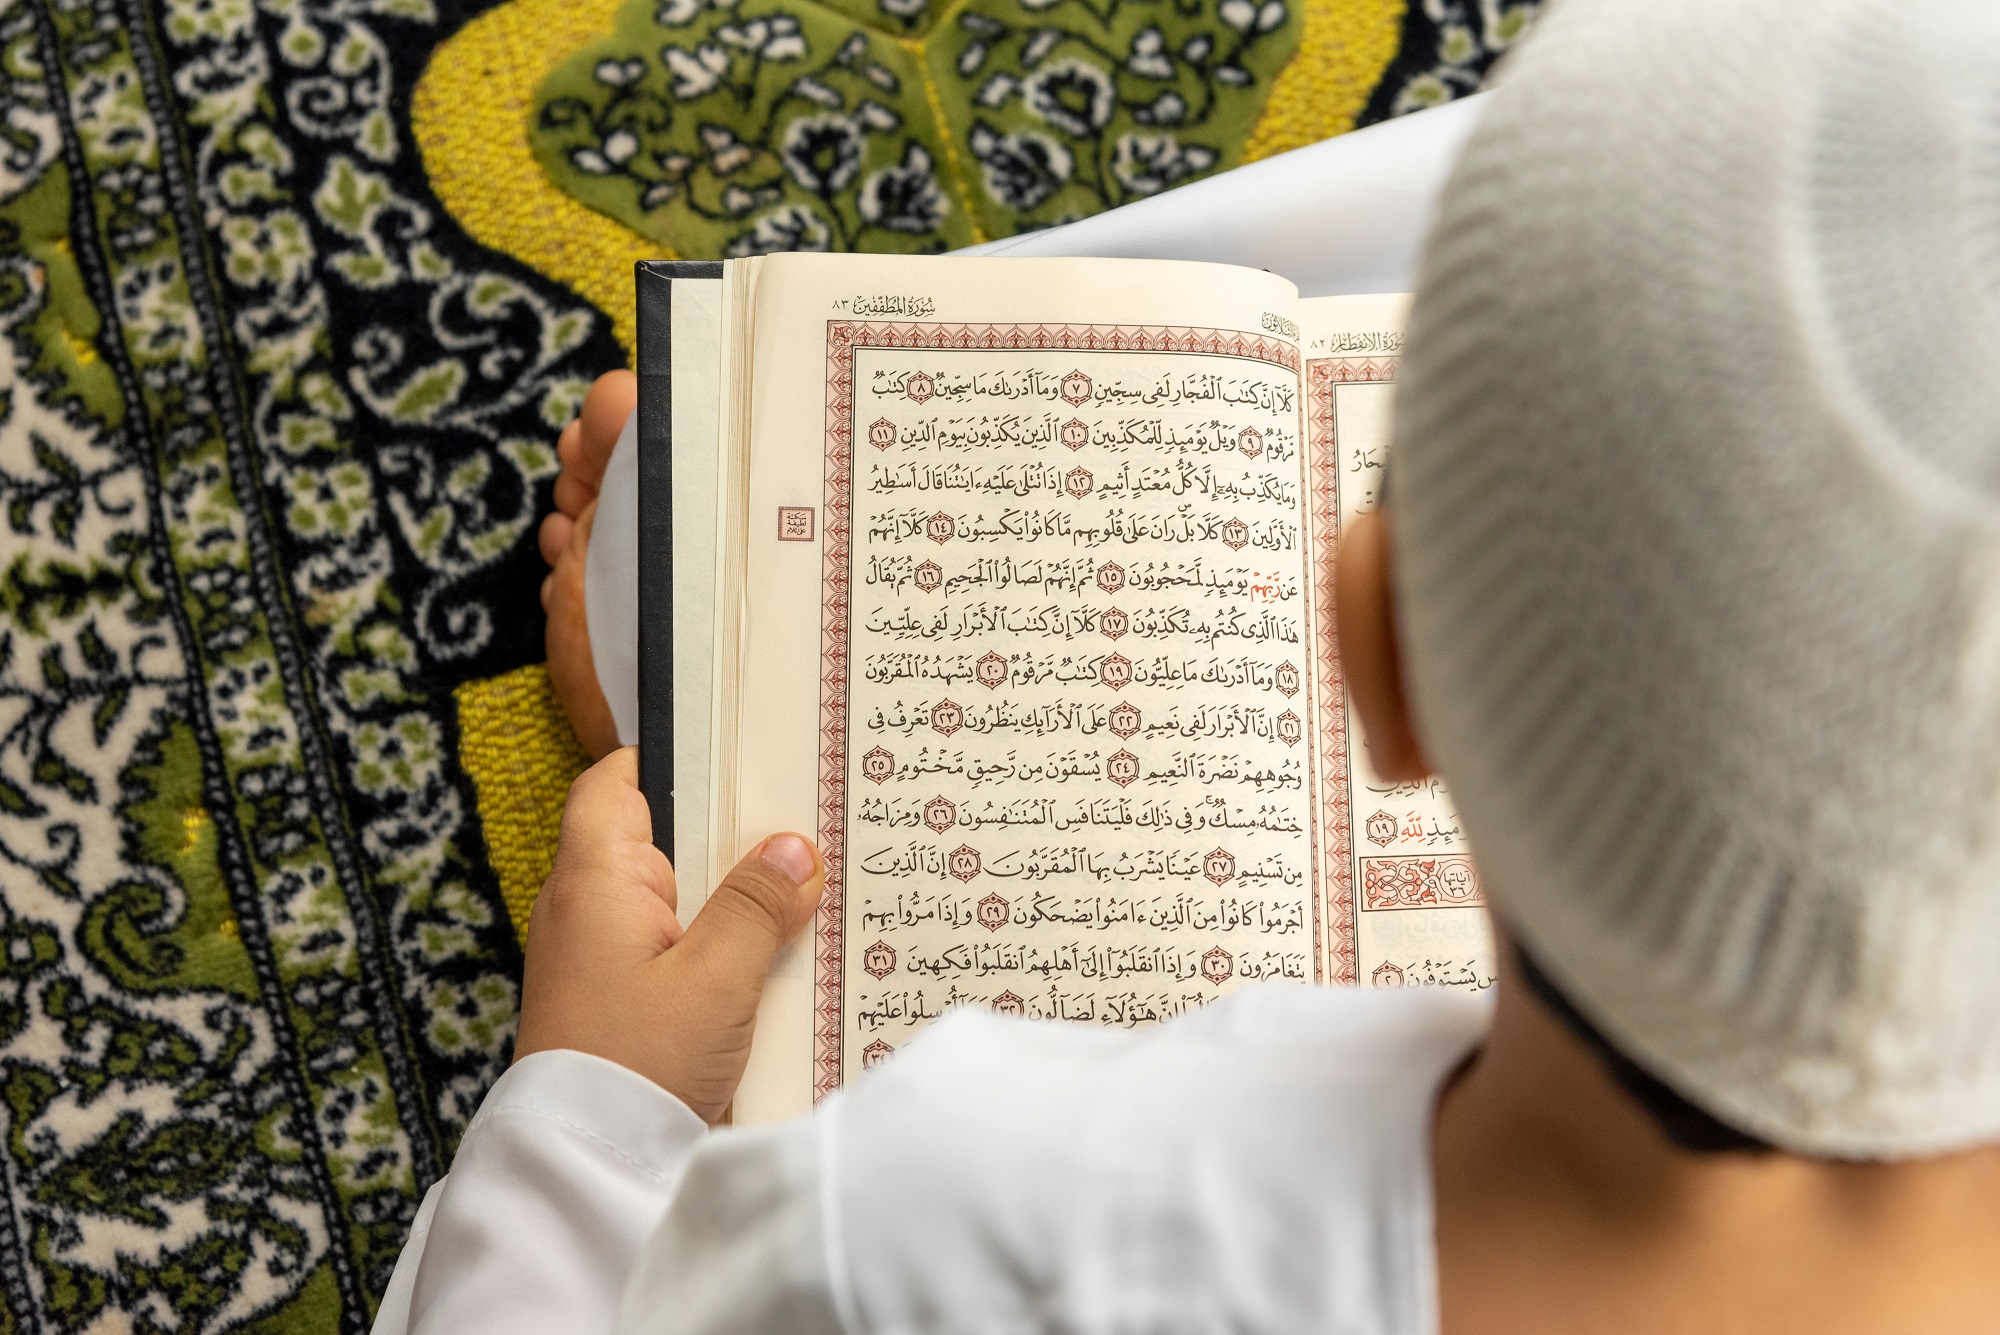 سُورَةُ المُطَفِّفِينَ ٨٣
كَلَّآ إِنَّ كِتَٰبَ ٱلْفُجَّارِ لَفِى سِجِّينٍ ٧ وَمَآ أَدْرَىٰكَ مَا سِجِّينٌ ٨ كِتَٰبٌ
مَّرْقُومٌ ٩ وَيْلٌ يَوْمَئِذٍ لِّلْمُكَذِّبِينَ ١٠ ٱلَّذِينَ يُكَذِّبُونَ بِيَوْمِ ٱلدِّينِ ١١
وَمَا يُكَذِّبُ بِهِۦٓ إِلَّا كُلُّ مُعْتَدٍ أَثِيمٍ ١٢ إِذَا تُتْلَىٰ عَلَيْهِ ءَايَٰتُنَا قَالَ أَسَٰطِيرُ
ٱلْأَوَّلِينَ ١٣ كَلَّا بَلْ رَانَ عَلَىٰ قُلُوبِهِم مَّا كَانُوا۟ يَكْسِبُونَ ١٤ كَلَّآ إِنَّهُمْ
عَن رَّبِّهِمْ يَوْمَئِذٍ لَّمَحْجُوبُونَ ١٥ ثُمَّ إِنَّهُمْ لَصَالُوا۟ ٱلْجَحِيمِ ١٦ ثُمَّ يُقَالُ
هَٰذَا ٱلَّذِى كُنتُم بِهِۦ تُكَذِّبُونَ ١٧ كَلَّآ إِنَّ كِتَٰبَ ٱلْأَبْرَارِ لَفِى عِلِّيِّينَ
١٨ وَمَآ أَدْرَىٰكَ مَا عِلِّيُّونَ ١٩ كِتَٰبٌ مَّرْقُومٌ ٢٠ يَشْهَدُهُ ٱلْمُقَرَّبُونَ
٢١ إِنَّ ٱلْأَبْرَارَ لَفِى نَعِيمٍ ٢٢ عَلَى ٱلْأَرَآئِكِ يَنظُرُونَ ٢٣ تَعْرِفُ فِى
وُجُوهِهِمْ نَضْرَةَ ٱلنَّعِيمِ ٢٤ يُسْقَوْنَ مِن رَّحِيقٍ مَّخْتُومٍ ٢٥
خِتَٰمُهُۥ مِسْكٌ ۚ وَفِى ذَٰلِكَ فَلْيَتَنَافَسِ ٱلْمُتَنَٰفِسُونَ ٢٦ وَمِزَاجُهُۥ
مِن تَسْنِيمٍ ٢٧ عَيْنًا يَشْرَبُ بِهَا ٱلْمُقَرَّبُونَ ٢٨ إِنَّ ٱلَّذِينَ
أَجْرَمُوا۟ كَانُوا۟ مِنَ ٱلَّذِينَ ءَامَنُوا۟ يَضْحَكُونَ ٢٩ وَإِذَا مَرُّوا۟ بِهِمْ
يَتَغَامَزُونَ ٣٠ وَإِذَا ٱنقَلَبُوٓا۟ إِلَىٰٓ أَهْلِهِمُ ٱنقَلَبُوا۟ فَكِهِينَ ٣١
إِنَّ هَٰٓؤُلَآءِ لَضَآلُّونَ ٣٢ عَلَيْهِمْ
سُورَةُ الانفِطَارِ ٨٢
لِّلَّهِ ١٩
آياتها ٣٦
يَسْتَوْفُونَ ٢